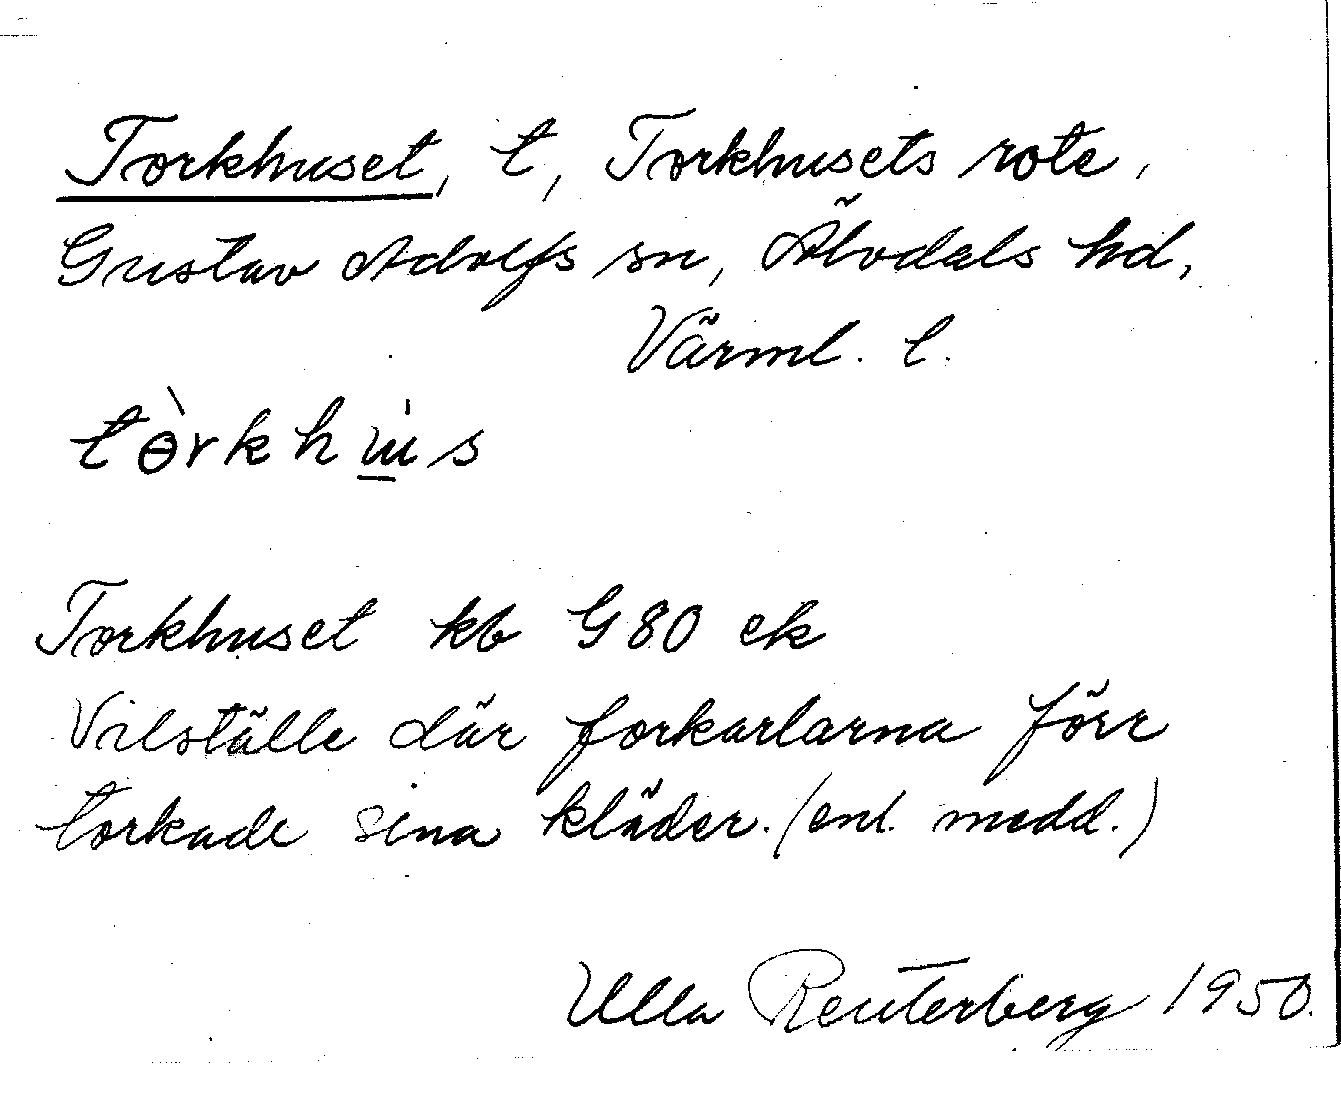 Torkhuset, t, Torkhusets rote,
Gustav Adolfs sn, Älvdals hd,
Värml. l.
tɵ̀rkhɯ́s
Torkhuset kb G 80 ek
Vilställe där forkarlarna förr
torkade sina kläder. (enl. medd.)
Ulla Reuterberg 1950.